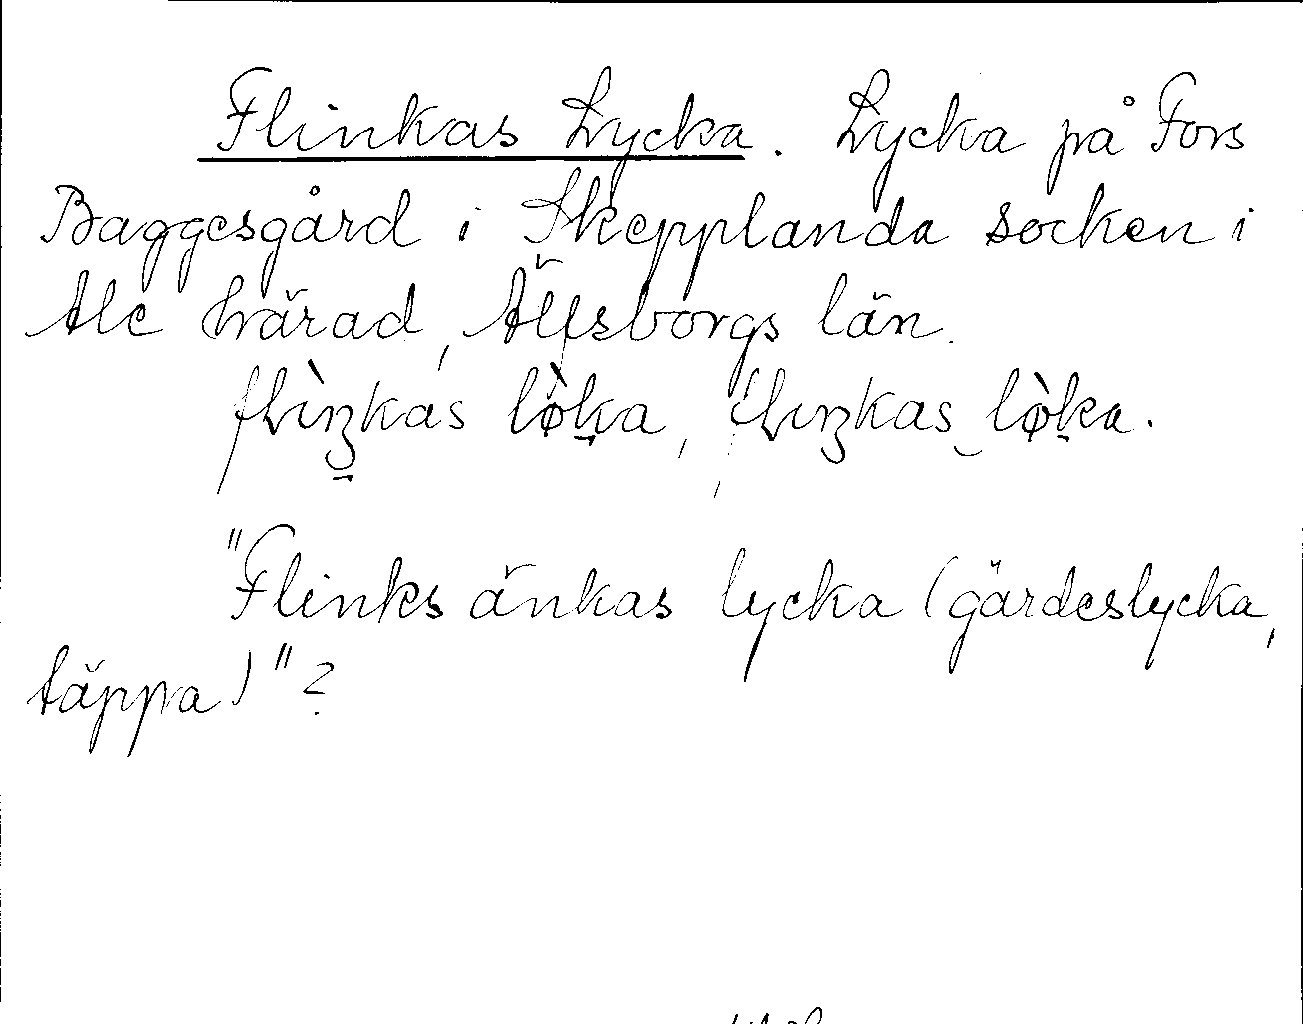 Flinkas Lycka. Lycka på Fors
Baggesgård i Skepplanda socken i
Ale härad, Älfsborgs län.
flìŋkas lø̀ka, flìŋkas lø̀ka.
"Flinks änkas lycka (gärdeslycka,
täppa)"?